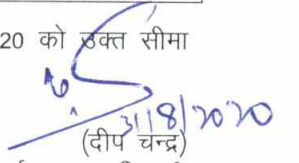 20 को उक्त सीमा
31/8/2020
(दीप चन्द्र)